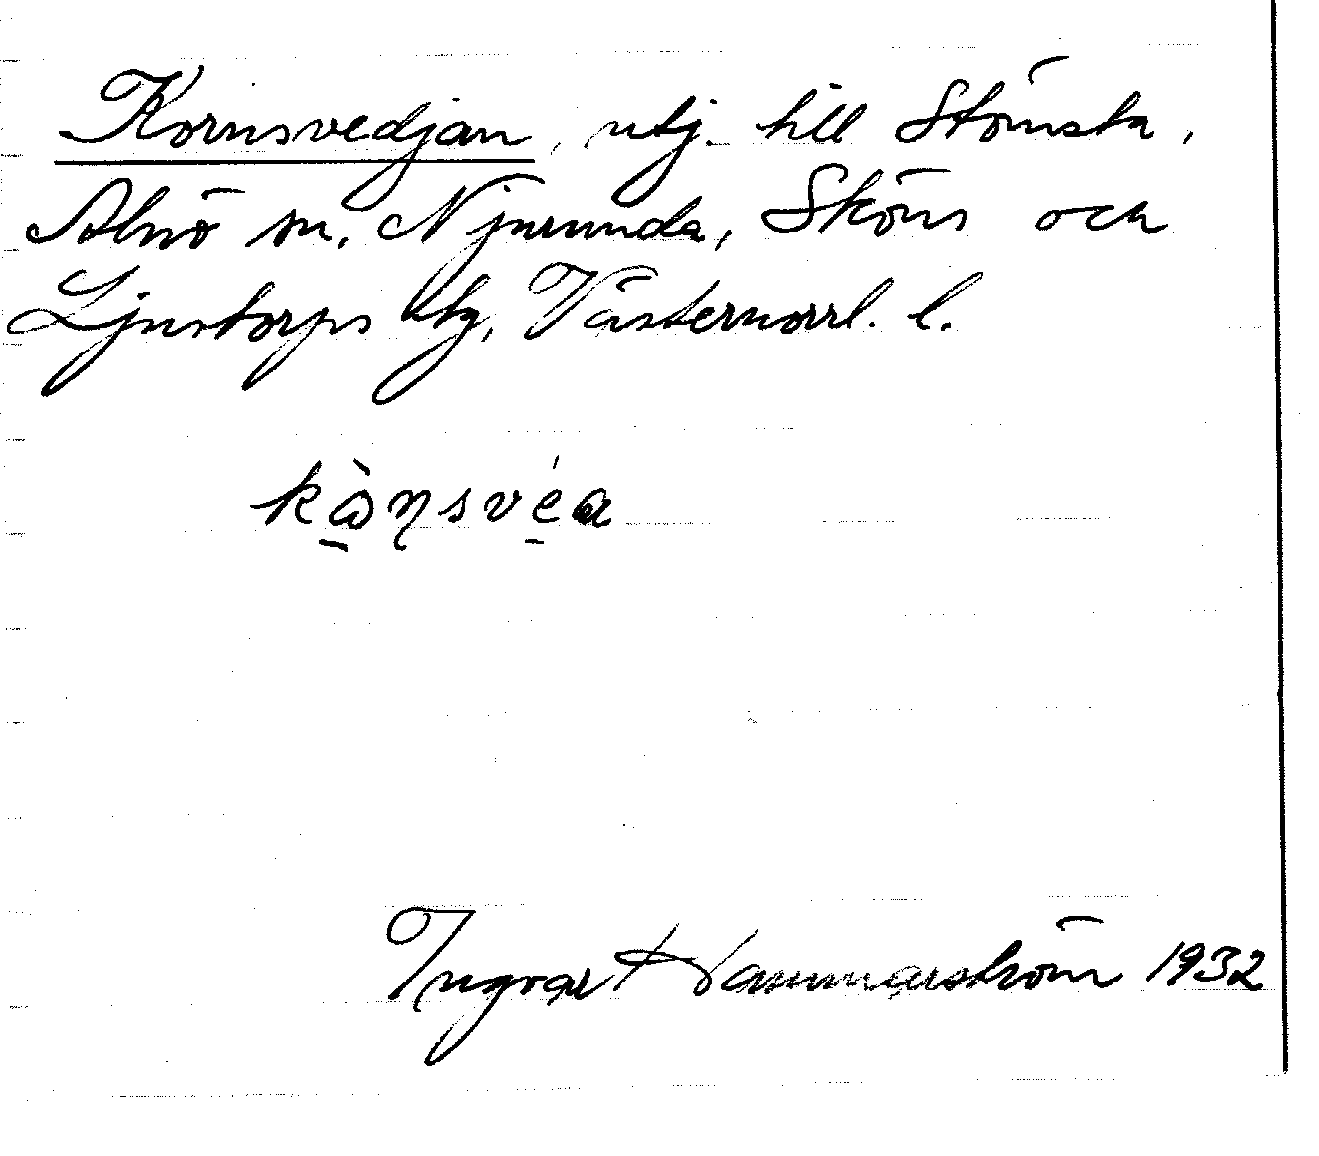 Kornsvedjan, utj. till Stömsta,
Alnö sn, Njurunda, Sköns och
Ljustorps tg, Västernorrl. l.
kò̱ṇsvé̱a
Ingvar Hammarström 1932